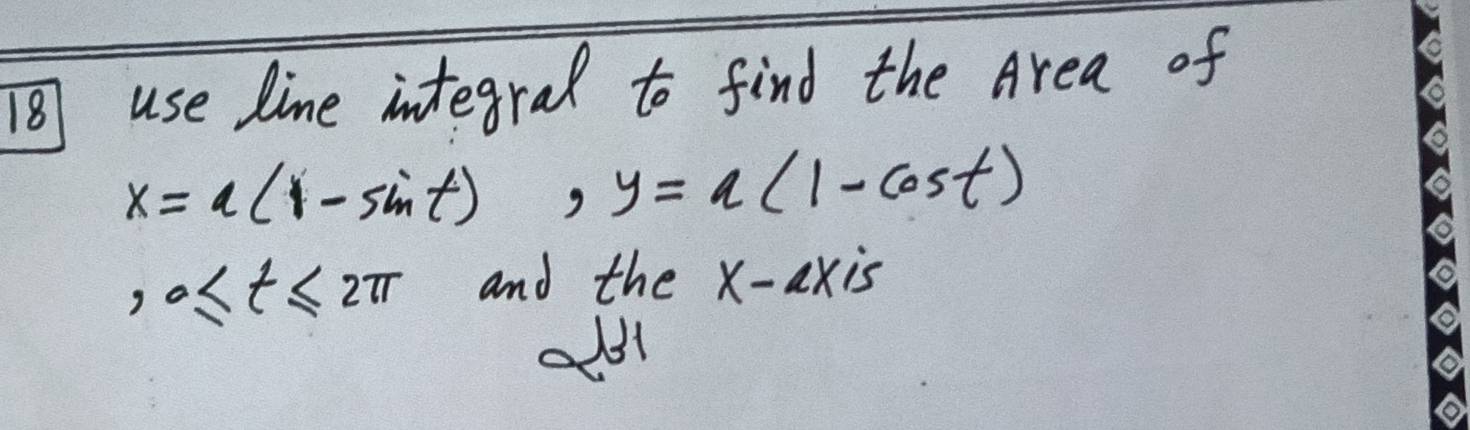 18 use line integral to find the Area of
x = a(1 - sin t) , y = a(1 - cost)
, 0 ⩽ t ⩽ 2π and the x-axis